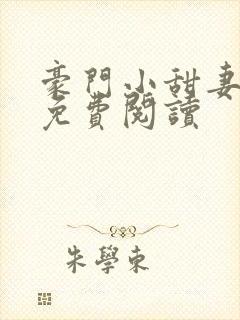 豪門小甜妻
免費閱讀
朱學東